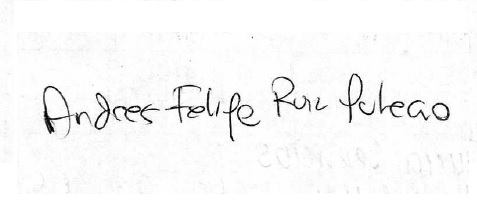 Andres Felipe Ruiz Pacheco